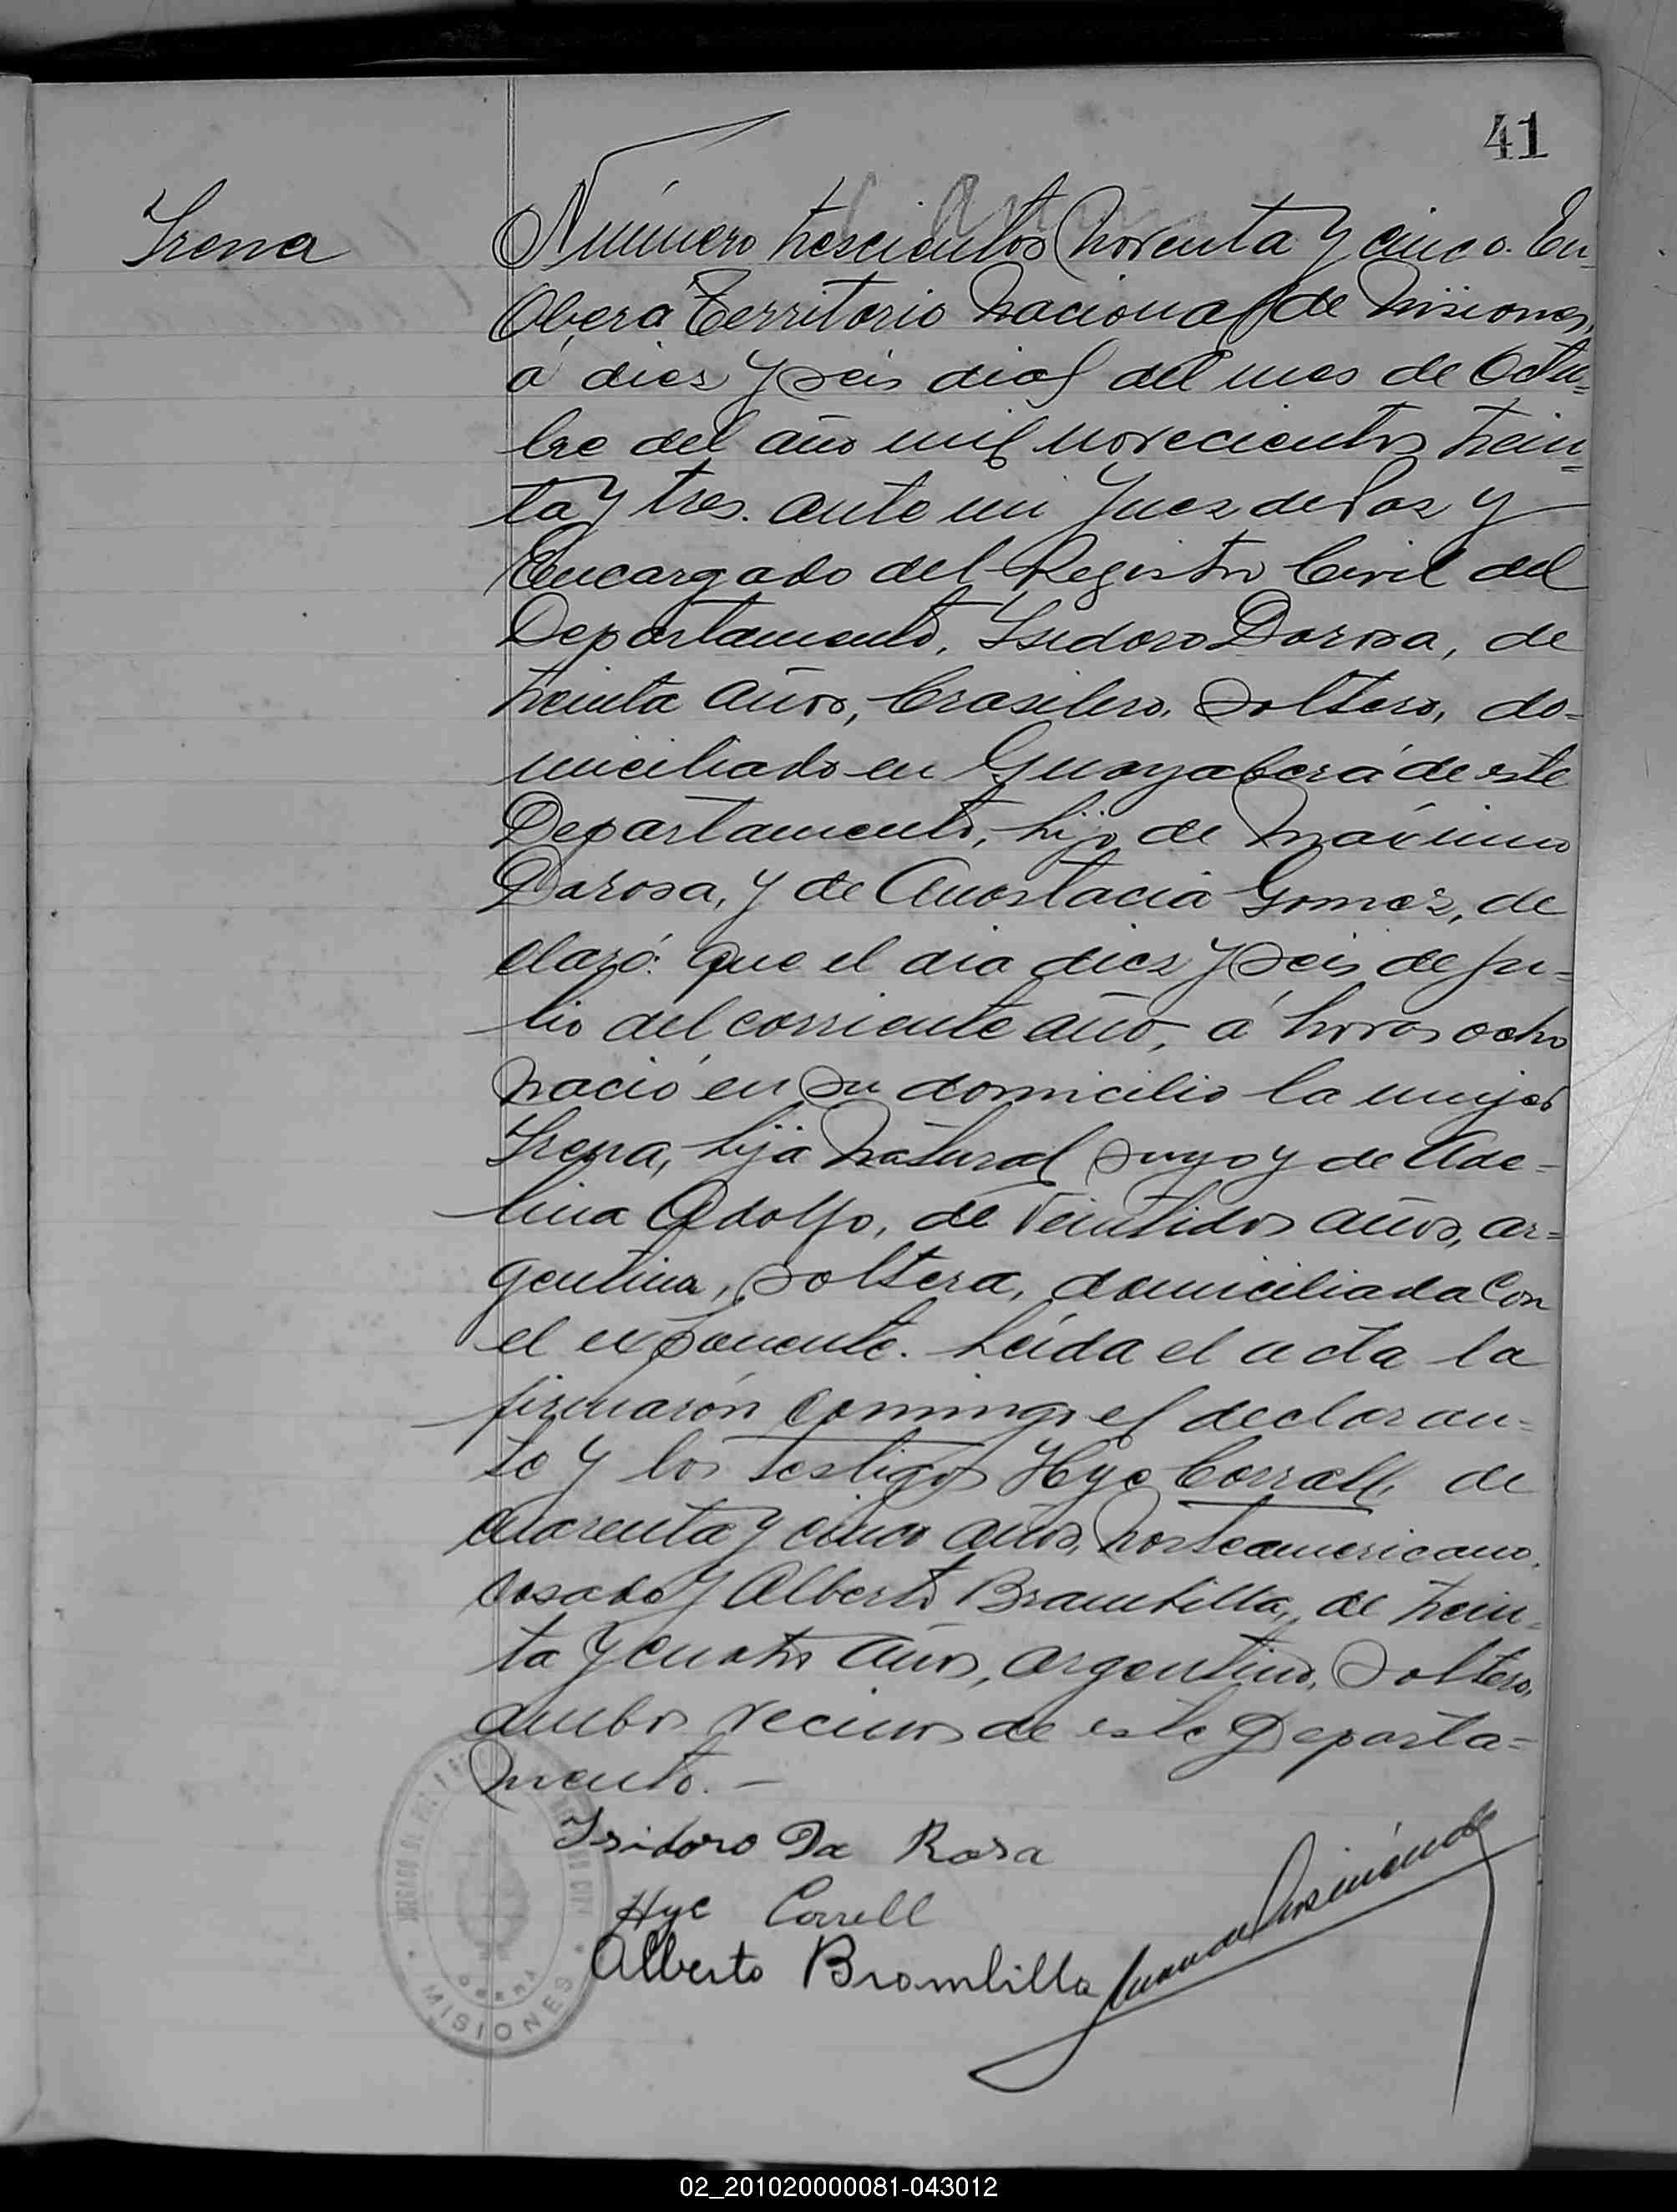 41
Irena
Número trescientos noventa y cinco. En
Oberá Territorio Nacional de Misiones,
á dies y seis dias del mes de Octu=
bre del año mil novecientos trein=
ta y tres. ante mi Juez de Paz y
Encargado del Registro Civil del
Departamento, Isidoro Darosa, de
treinta años, brasilero, soltero, do=
miciliado en Guayaberá de este
Departamento, hijo de Maximo
Darosa, y de Anastacia Gomez, de
claró: que el dia dies y seis de ju=
lio del corriente año, á horas ocho
nació en su domicilio la mujer
Irena, hija natural suya y de Ade=
lina Adolfo, de veintidos años, ar=
gentina, soltera, domiciliada con
el exponente. Leída el acta la
firmarón conmigo el declaran=
te y los testigos Hye Correll, de
cuarenta y cinco años, norteamericano,
casado y Alberto Brambilla, de trein=
ta y cuatro años, argentino, soltero,
ambos vecinos de este Departa=
mento. —
Isidoro Da Rosa
Hye Correll
Alberto Brambilla
JUZGADO DE PAZ
REGISTRO CIVIL
OBERÁ
MISIONES
02_201020000081-043012